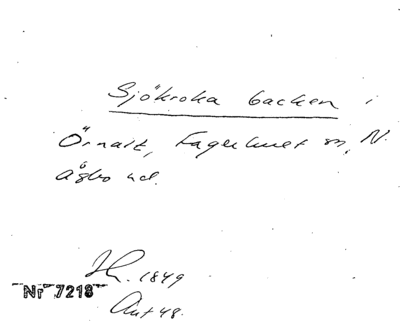 Sjökroka backen i
Örnalt, Fagerhult sn, N.
Åsbo hd.
Hn. 1849
Nr 7218
Ant 48.